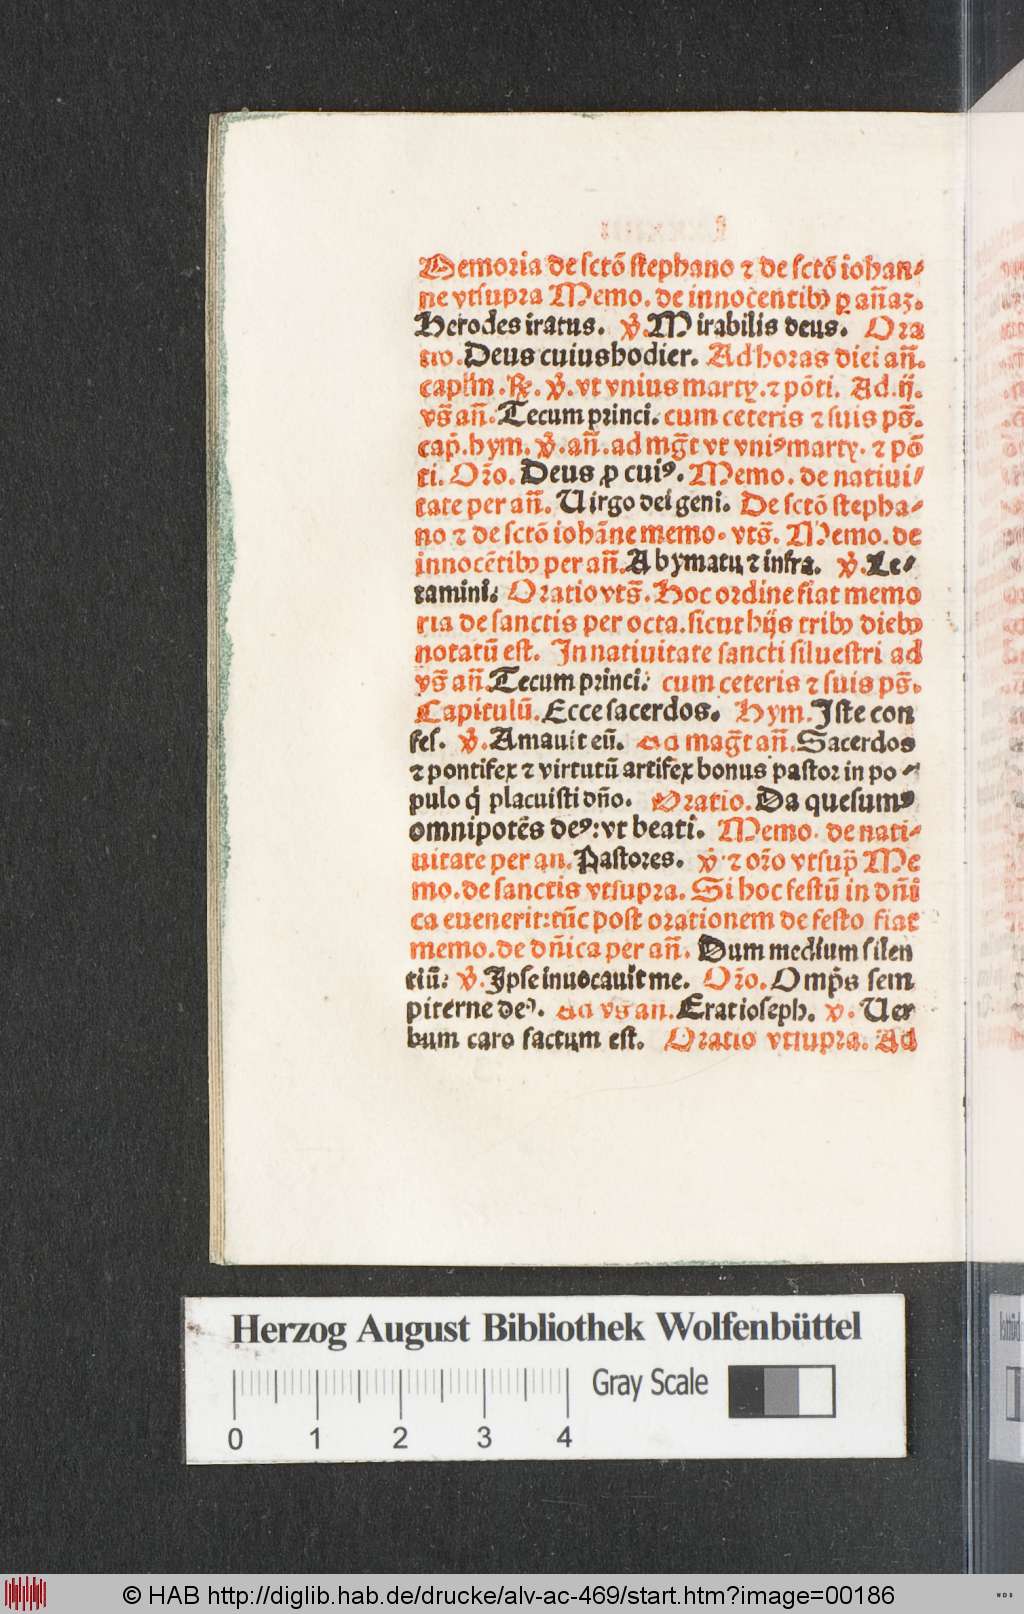 Memoria de sctō stephano ⁊ de sctō iohan⸗
ne vtsupra Memo. de innocentibꝰ ꝑ añaꝫ.
Herodes iratus. ℣. Mirabilis deus. Ora
tio. Deus cuius hodier. Ad horas diei añ.
caplm̄. ℟. ℣. vt vnius marty. ⁊ pōti. Ad .ij.
vs̄ añ. Tecum princi. cum ceteris ⁊ suis ps̄.
cap̄. hym. ℣. añ. ad mg̃t vt vniꝰ marty. ⁊ pō
ti. Or̃o. Deus ꝓ cuiꝰ. Memo. de natiui⸗
tate per añ. Uirgo dei geni. De sctō stepha⸗
no ⁊ de sctō iohāne memo. vts̄. Memo. de
innocētibꝰ per añ. A bymatu ⁊ infra. ℣. Le⸗
tamini. Oratio vts̄. Hoc ordine fiat memo
ria de sanctis per octa. sicut hijs tribꝰ diebꝰ
notatū est. In natiuitate sancti siluestri ad
vs̄ añ. Tecum princi. cum ceteris ⁊ suis ps̄.
Capitulū. Ecce sacerdos. Hym. Iste con
fes. ℣. Amauit eū. ad mag̃t añ. Sacerdos
⁊ pontifex ⁊ virtutū artifex bonus pastor in po⸗
pulo q̇ placuisti dño. Oratio. Da quesumꝰ
omnipotēs deꝰ: vt beati. Memo. de nati⸗
uitate per an. Pastores. ℣. ⁊ or̃o vtsup̄ Me
mo. de sanctis vtsupra. Si hoc festū in dñi
ca euenerit: tūc post orationem de festo fiat
memo. de dñica per añ. Dum medium silen
tiū: ℣. Ipse inuocauit me. Or̃o. Omp̄s sem
piterne deꝰ. ad vs an. Erat ioseph. ℣. Uer
bum caro factum est. Oratio vtsupra. Ad
Herzog August Bibliothek Wolfenbüttel
Gray Scale
0 1 2 3 4
© HAB http://diglib.hab.de/drucke/alv-ac-469/start.htm?image=00186